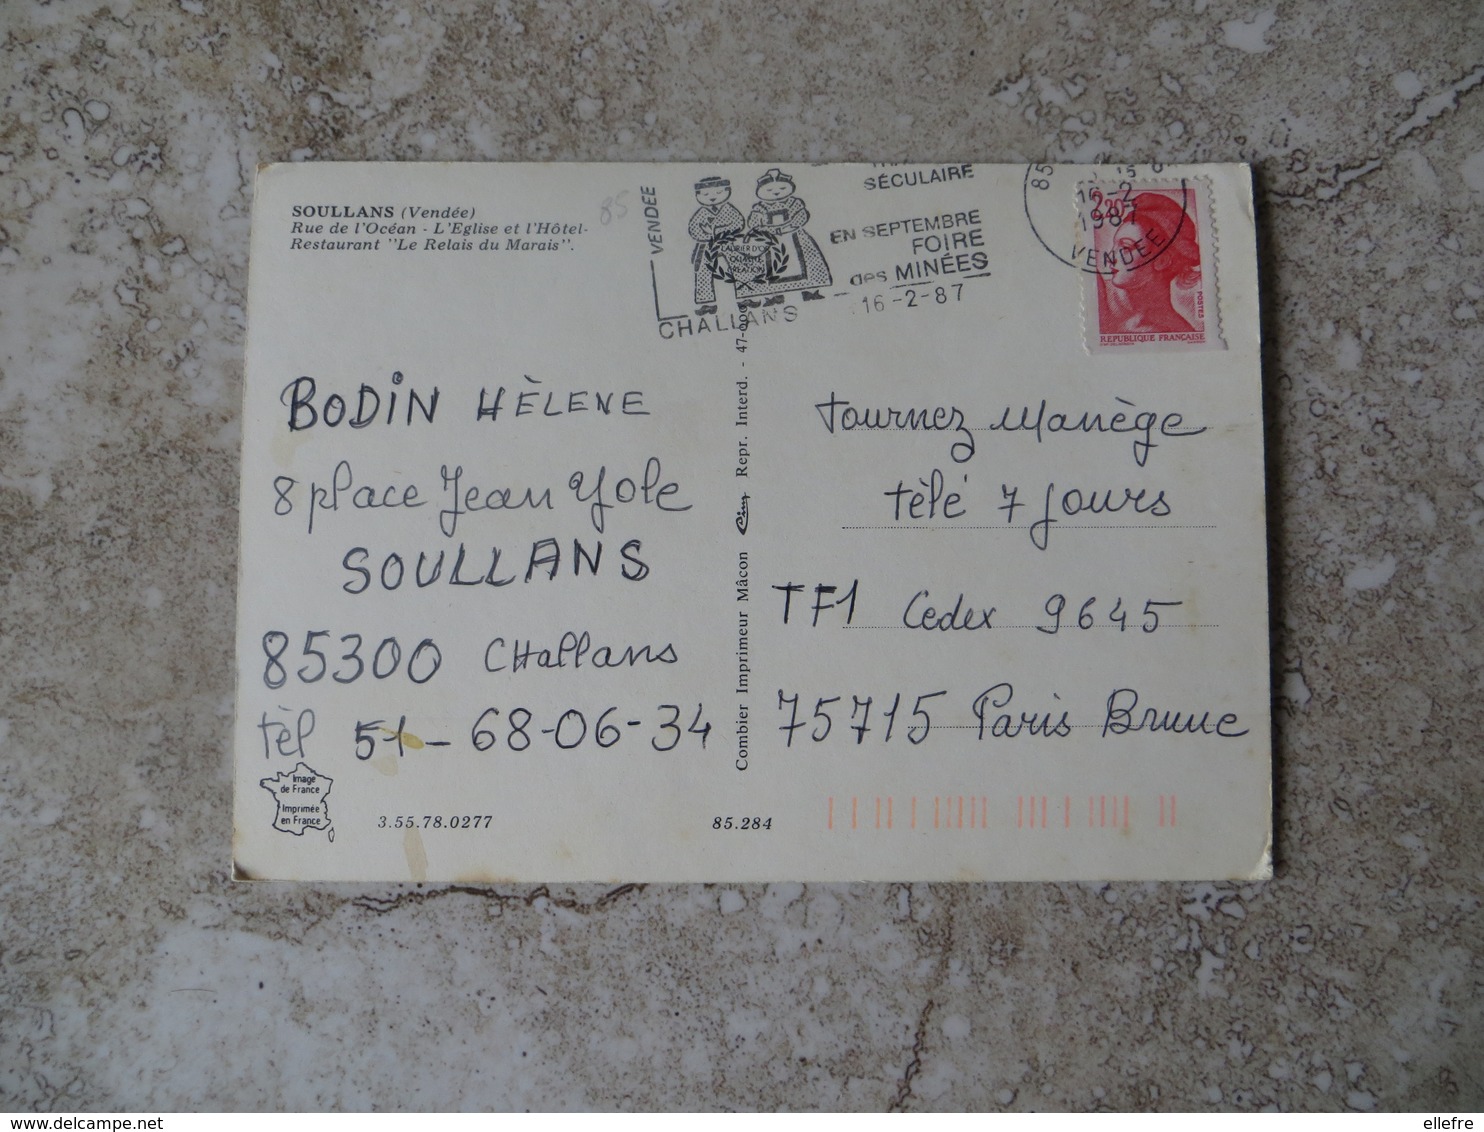 SOULLANS (Vendée)
Rue de l'Océan - L'Eglise et l'Hôtel-
Restaurant "Le Relais du Marais".
85
VENDEE
LAURIER D'OR
QUALITÉ
CREATION
CHALLANS
SÉCULAIRE
EN SEPTEMBRE
FOIRE
des MINÉES
16-2-87
85
16-2
1987
VENDEE
2,20
POSTES
REPUBLIQUE FRANÇAISE
BODIN HÈLENE
8 place Jean Yole
SOULLANS
85300 CHallans
tèl 51-68-06-34
Image
de France
Imprimée
en France
3.55.78.0277
85.284
Combier Imprimeur Mâcon Cim Repr. Interd. -
Tournez Manège
tèlé 7 Jours
TF1 Cedex 9645
75715 Paris Brune
ellefre